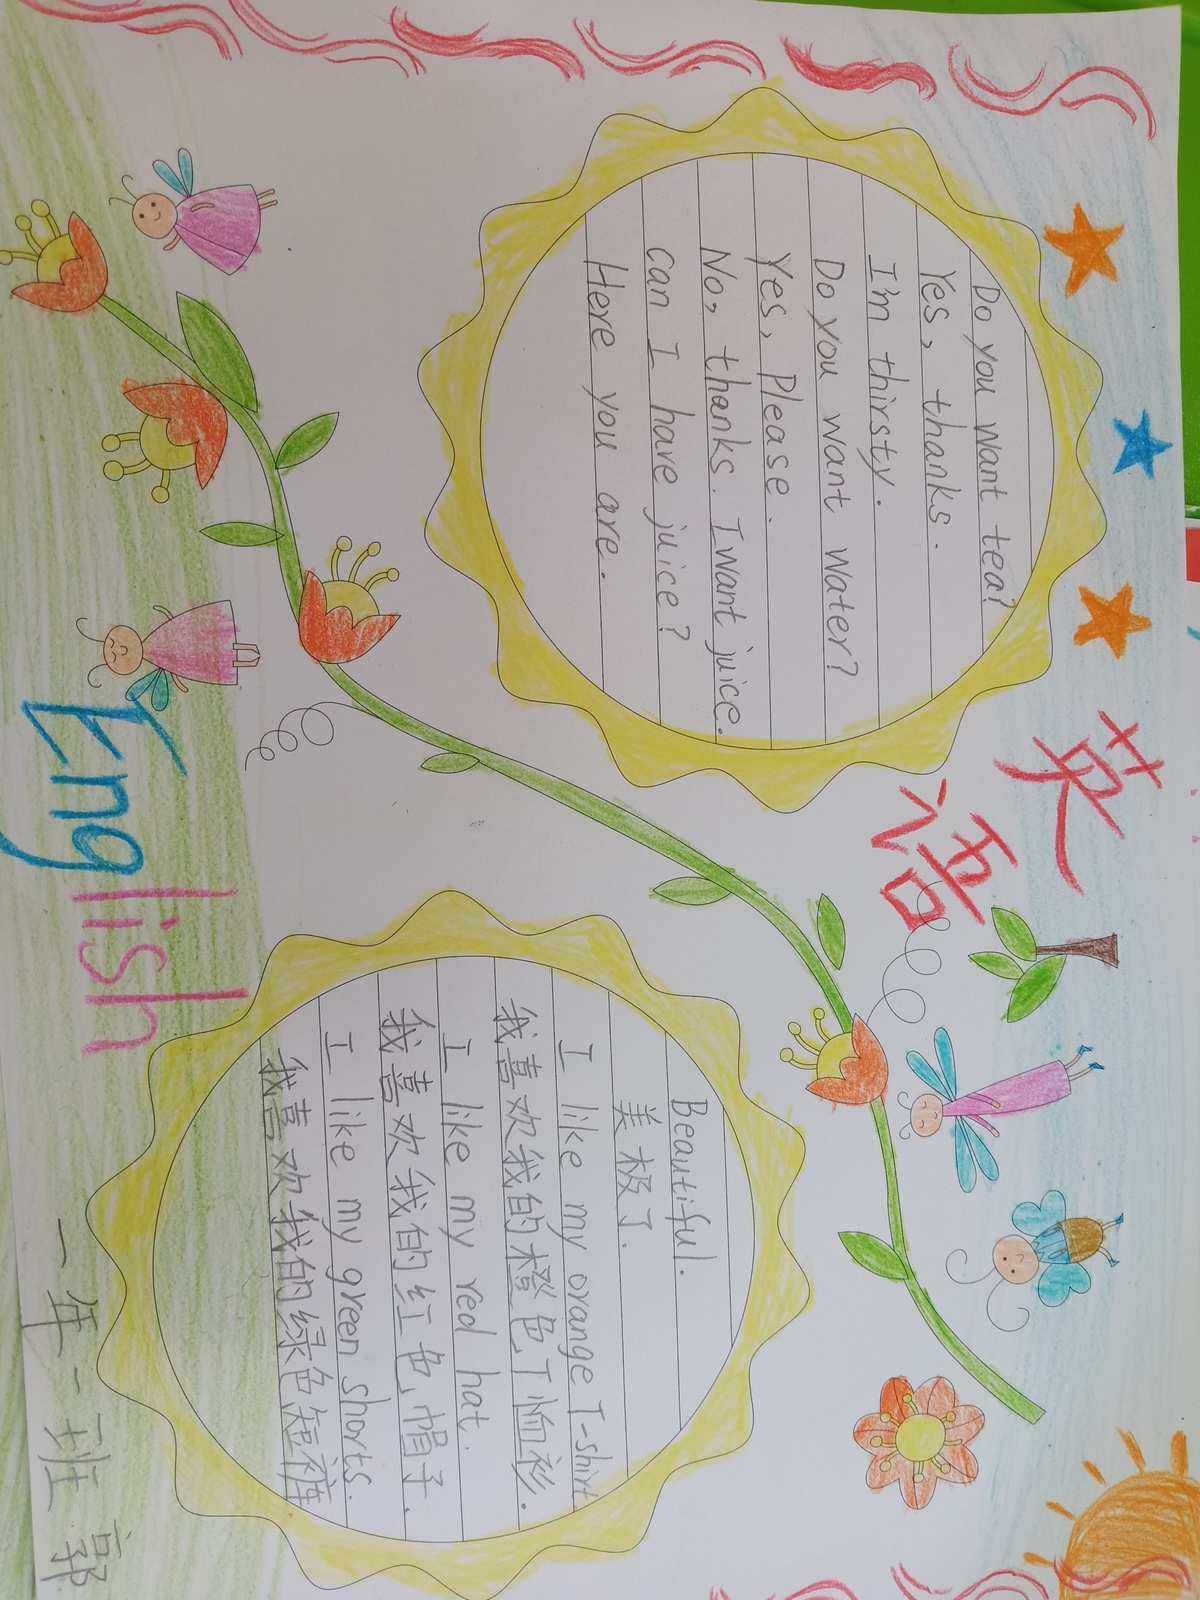 英语
Do you want tea?
Yes, thanks.
I'm thirsty.
Do you want water?
Yes, Please.
No, thanks. I want juice.
can I have juice?
Here you are.
Beautiful.
美极了.
I like my orange T-shirt
我喜欢我的橙色T恤衫.
I like my red hat.
我喜欢我的红色帽子.
I like my green shorts.
我喜欢我的绿色短裤
English
一年一班 郭